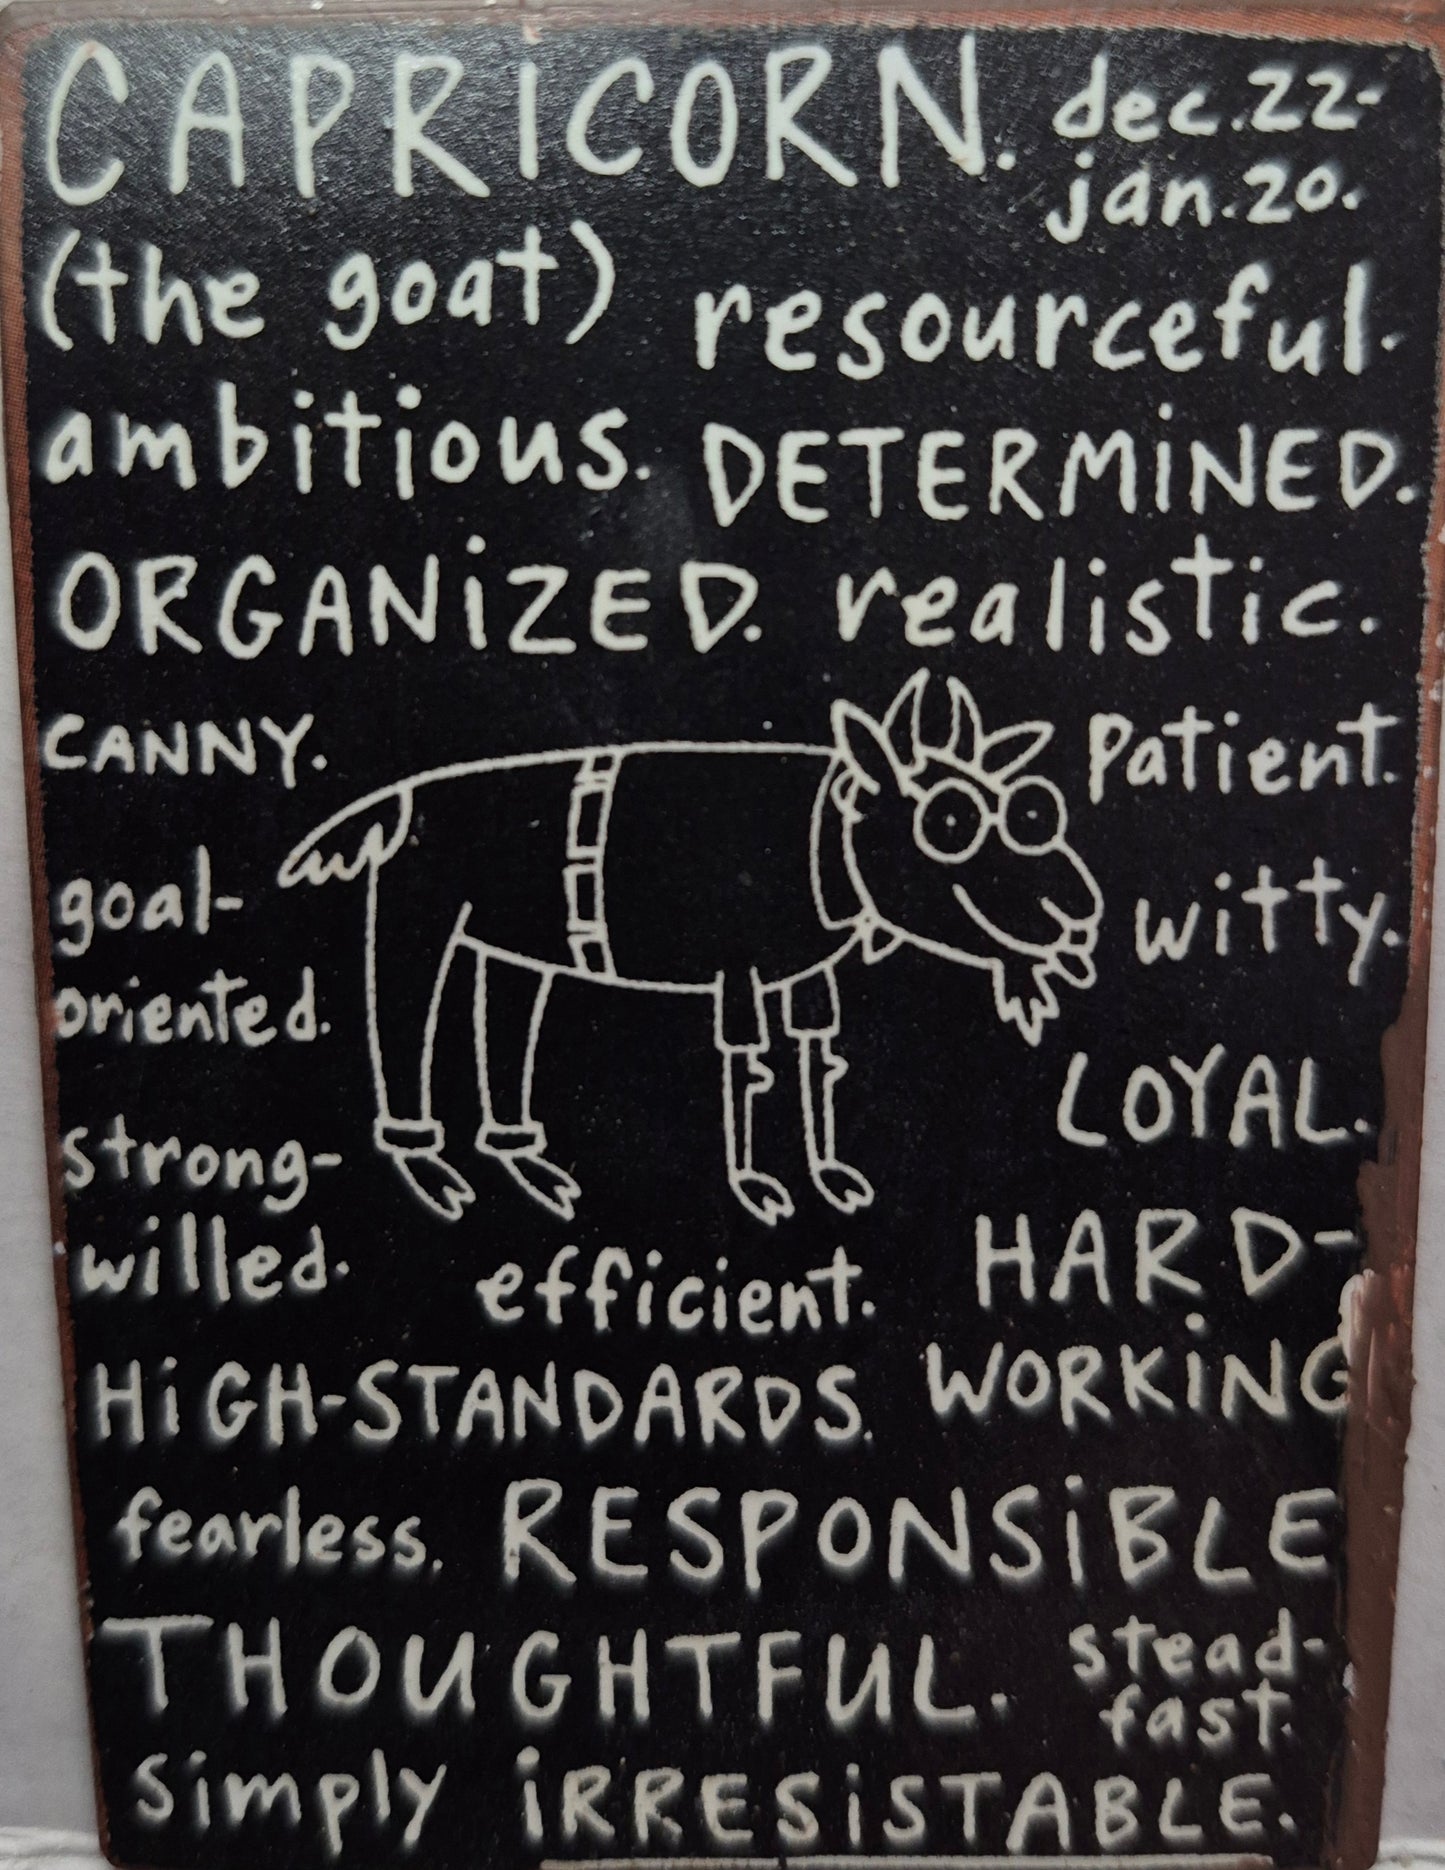 CAPRiCORN. dec.22-
jan.20.
(the goat) resourceful.
ambitious. DETERMiNED.
ORGANiZED. realistic.
CANNY. patient.
goal- witty.
oriented.
LOYAL.
strong-
willed. efficient. HARD-
HiGH-STANDARDS. WORKiNG
fearless. RESPONSiBLE
THOUGHTFUL. stead-
fast.
simply iRRESiSTABLE.